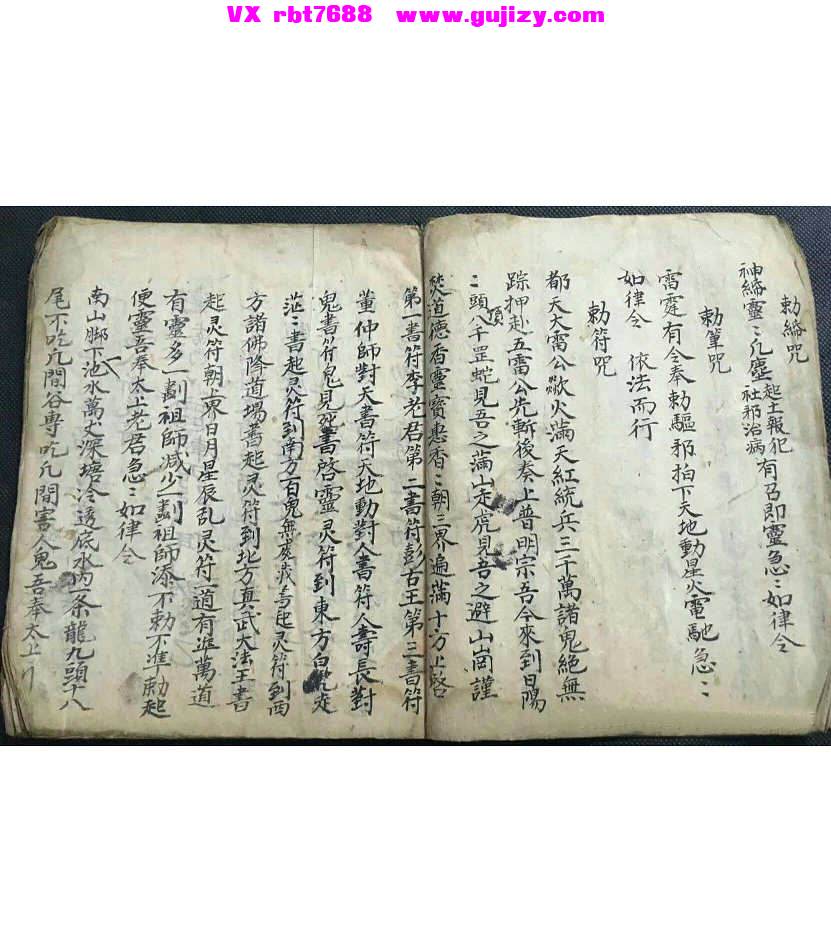 VX rbt7688 www.gujizy.com
勅綈咒
神綈靈〻凡塵起土報犯社邪治病有召即靈急〻如律令
勅筆咒
雷霆有令奉勅驅邪拍下天地動星火電馳急〻
如律令 依法而行
勅符咒
都天大雷公歘火滿天紅統兵三千萬諸鬼絕無
踪押赴五雷公先斬後奏上普明宗吾今來到日陽
〻頭頂八千罡蛇見吾之滿山走虎見吾之避山崗謹
焚道德香靈寶惠香〻朝三界遍滿十方上啓
第一書符李老君第二書符彭古王第三書符
董仲師對天書符天地動對人書符人壽長對
鬼書符鬼見死書啓靈灵符到東方白蛇走
茫〻書起灵符到南方百鬼無處藏書起灵符到西
方諸佛降道場書起灵符到北方真武大法王書
起灵符朝上界日月星辰乱灵符一道有進萬道
有靈多一劃祖師減少一劃祖師添不勅不準勅起
便靈吾奉太上老君急〻如律令
南山脚下池水萬丈深塘冷透底水內一条龍九頭十八
尾不吃凡間谷專吃凡間害人鬼吾奉太上